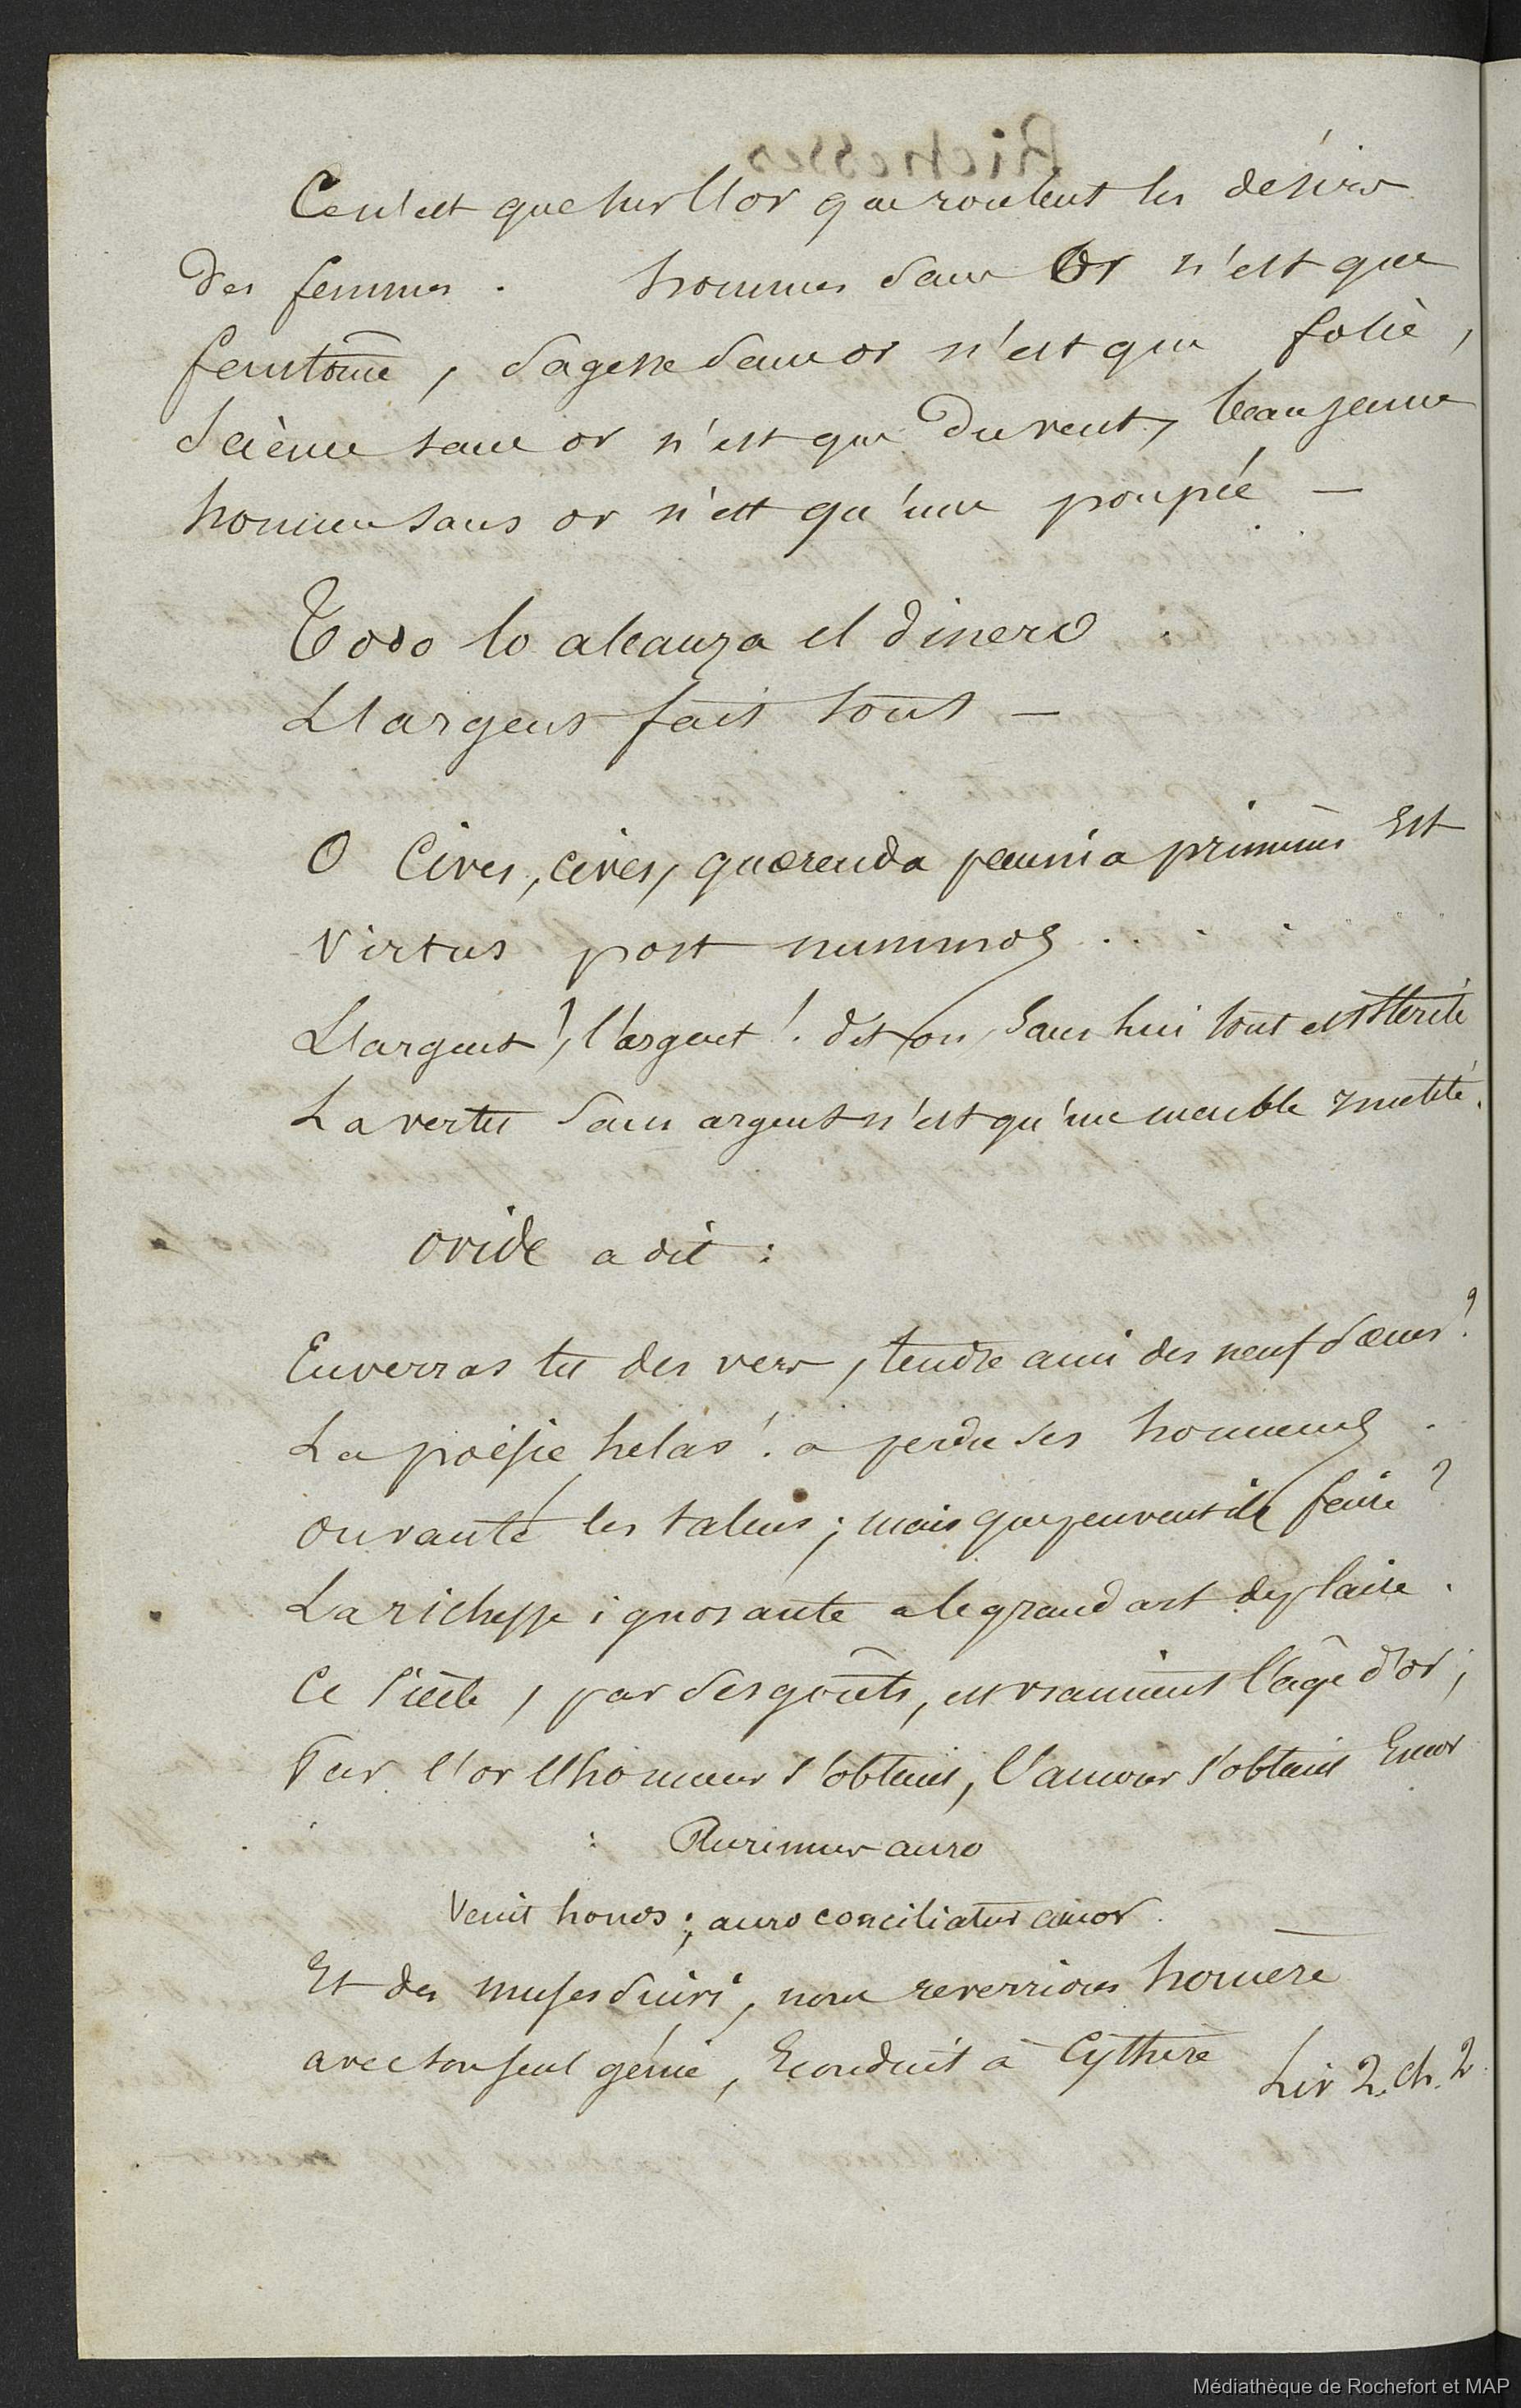 Ce n'est que sur l'or que roulent les désirs
des femmes. hommes sans Or n'est que
fantôme, sagesse sans or n'est que folie,
science sans or n'est que du vent, beau jeune
homme sans or n'est qu'une poupée —
Todo lo alcanza el dinero.
L'argent fait tout —
O Cives, cives, quærenda pecunia primum Est
Virtus post nummos . . . .
L'argent!, l'argent! dit on, sans lui tout est stérile
La vertu sans argent n'est qu'un meuble inutile.
ovide a dit :
Enverras tu des vers, tendre ami des neuf sœurs?
La poésie helas! a perdu ses honneurs.
on vante les talens; mais que peuvent ils faire?
La richesse ignorante a le grand art de plaire.
Ce siècle, par ses goûts, est vraiment l'âge d'or;
Par l'or l'honneur s'obtient, l'amour s'obtient Encor
: Plurimus auro
Venit honos; auro conciliatur amor.
Et des muses suivi, nous reverrions homère
avec son seul génie, Econduit à Cythère
Liv 2. ch. 2
Richesses
Médiathèque de Rochefort et MAP